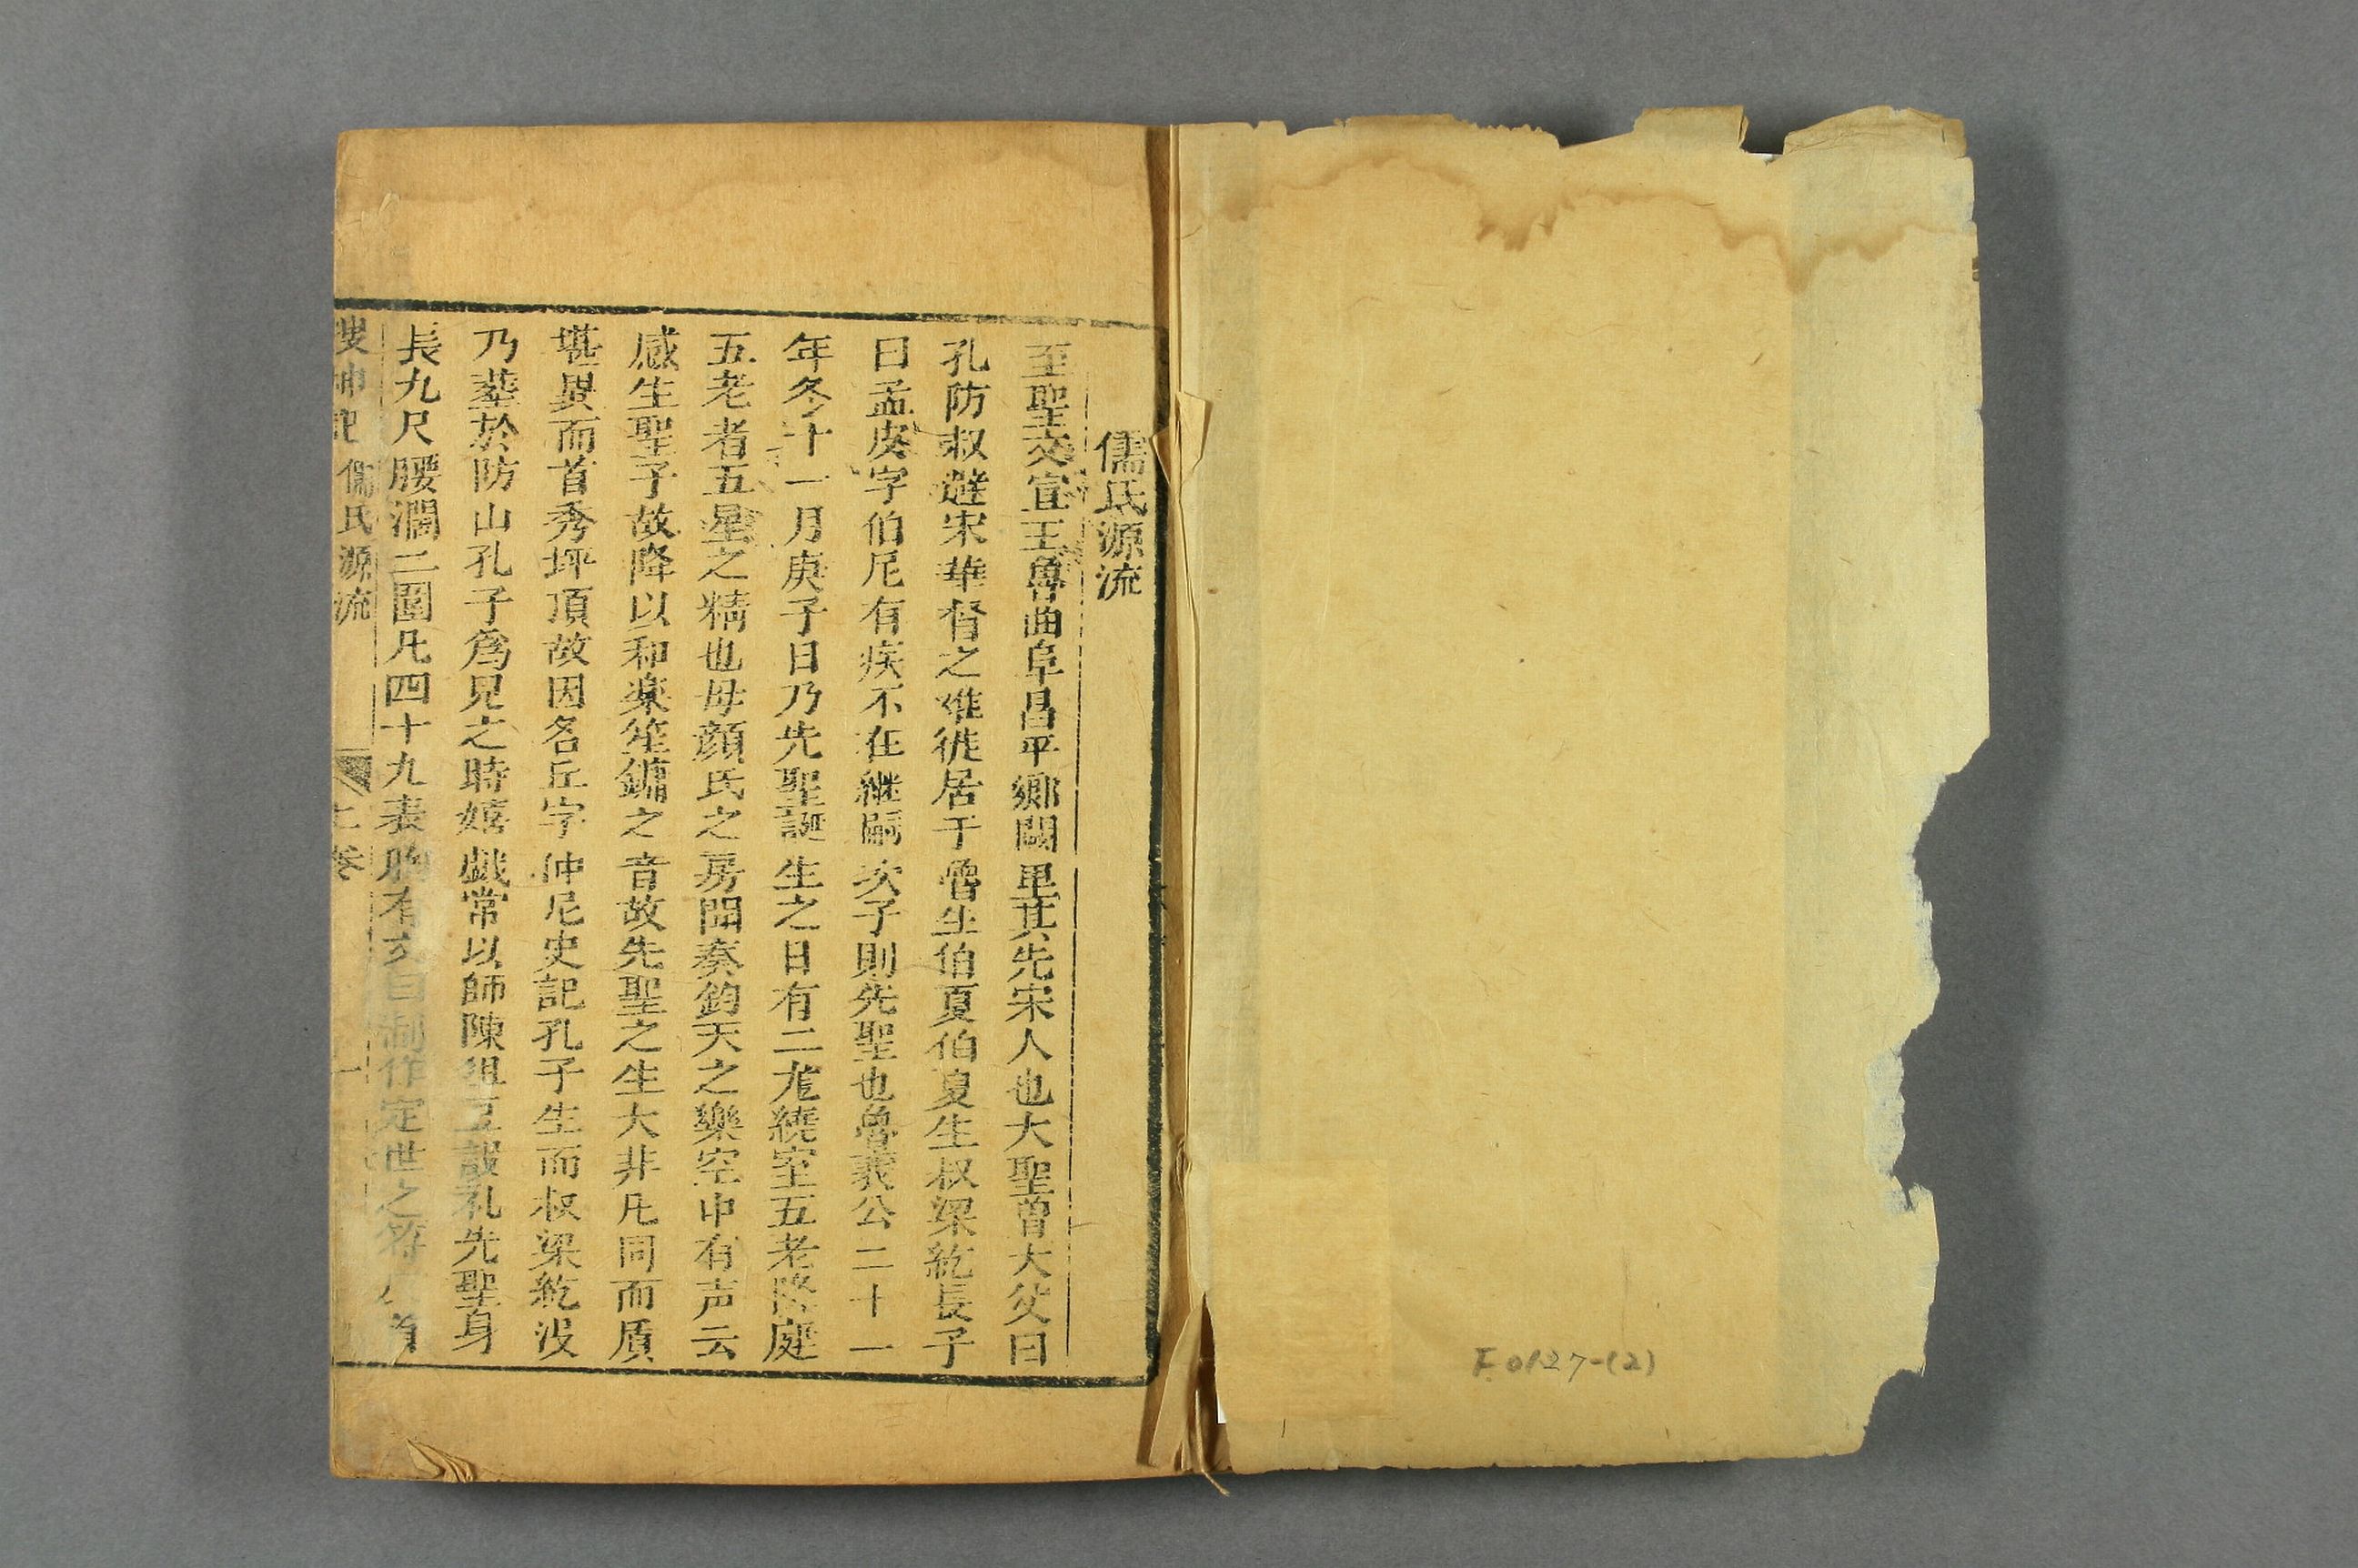 儒氏源流
至聖文宣王魯曲阜昌平鄉闕里其先宋人也大聖曾大父曰
孔防叔避宋華督之难徙居于魯生伯夏伯夏生叔梁紇長子
曰孟皮字伯尼有疾不在継嗣次子則先聖也魯襄公二十一
年冬十一月庚子日乃先聖誕生之日有二龙繞室五老降庭
五老者五星之精也母顔氏之房聞奏鈞天之樂空中有声云
感生聖子故降以和楽笙鏞之音故先聖之生大非凡同而質
堪異而首秀坪頂故因名丘字仲尼史記孔子生而叔梁紇没
乃葬於防山孔子為兒之時嬉戯常以師陳俎豆設礼先聖身
長九尺腰濶二圍凡四十九表胸有文曰制作定世之符
搜神記 儒氏源流 上卷 一
F.0127-(2)